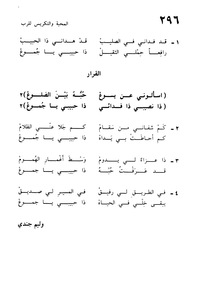 ٢٩٦
المحبة والتكريس للرب
١ - قد فداني في الصليب قد هداني ذا الحبيب
رافعاً حملي الثقيل ذا حبيبي يا جموع
القرار
(اسألوني عن يسوع حبه بين الضلوع)٢
(ذا نصيبي ذا فدائي ذا حبيبي يا جموع)٢
٢ - كم شفاني من سقام كم جلا عني الظلام
كم أحاطت بي يداه ذا حبيبي يا جموع
٣ - ذا عزاء لي يدوم وسط أغمار الهموم
قد عرفت حبه ذا حبيبي يا جموع
٤ - في الطريق لي رفيق في المسير لي صديق
بقى لي في الحياة ذا حبيبي يا جموع
وليم جندي